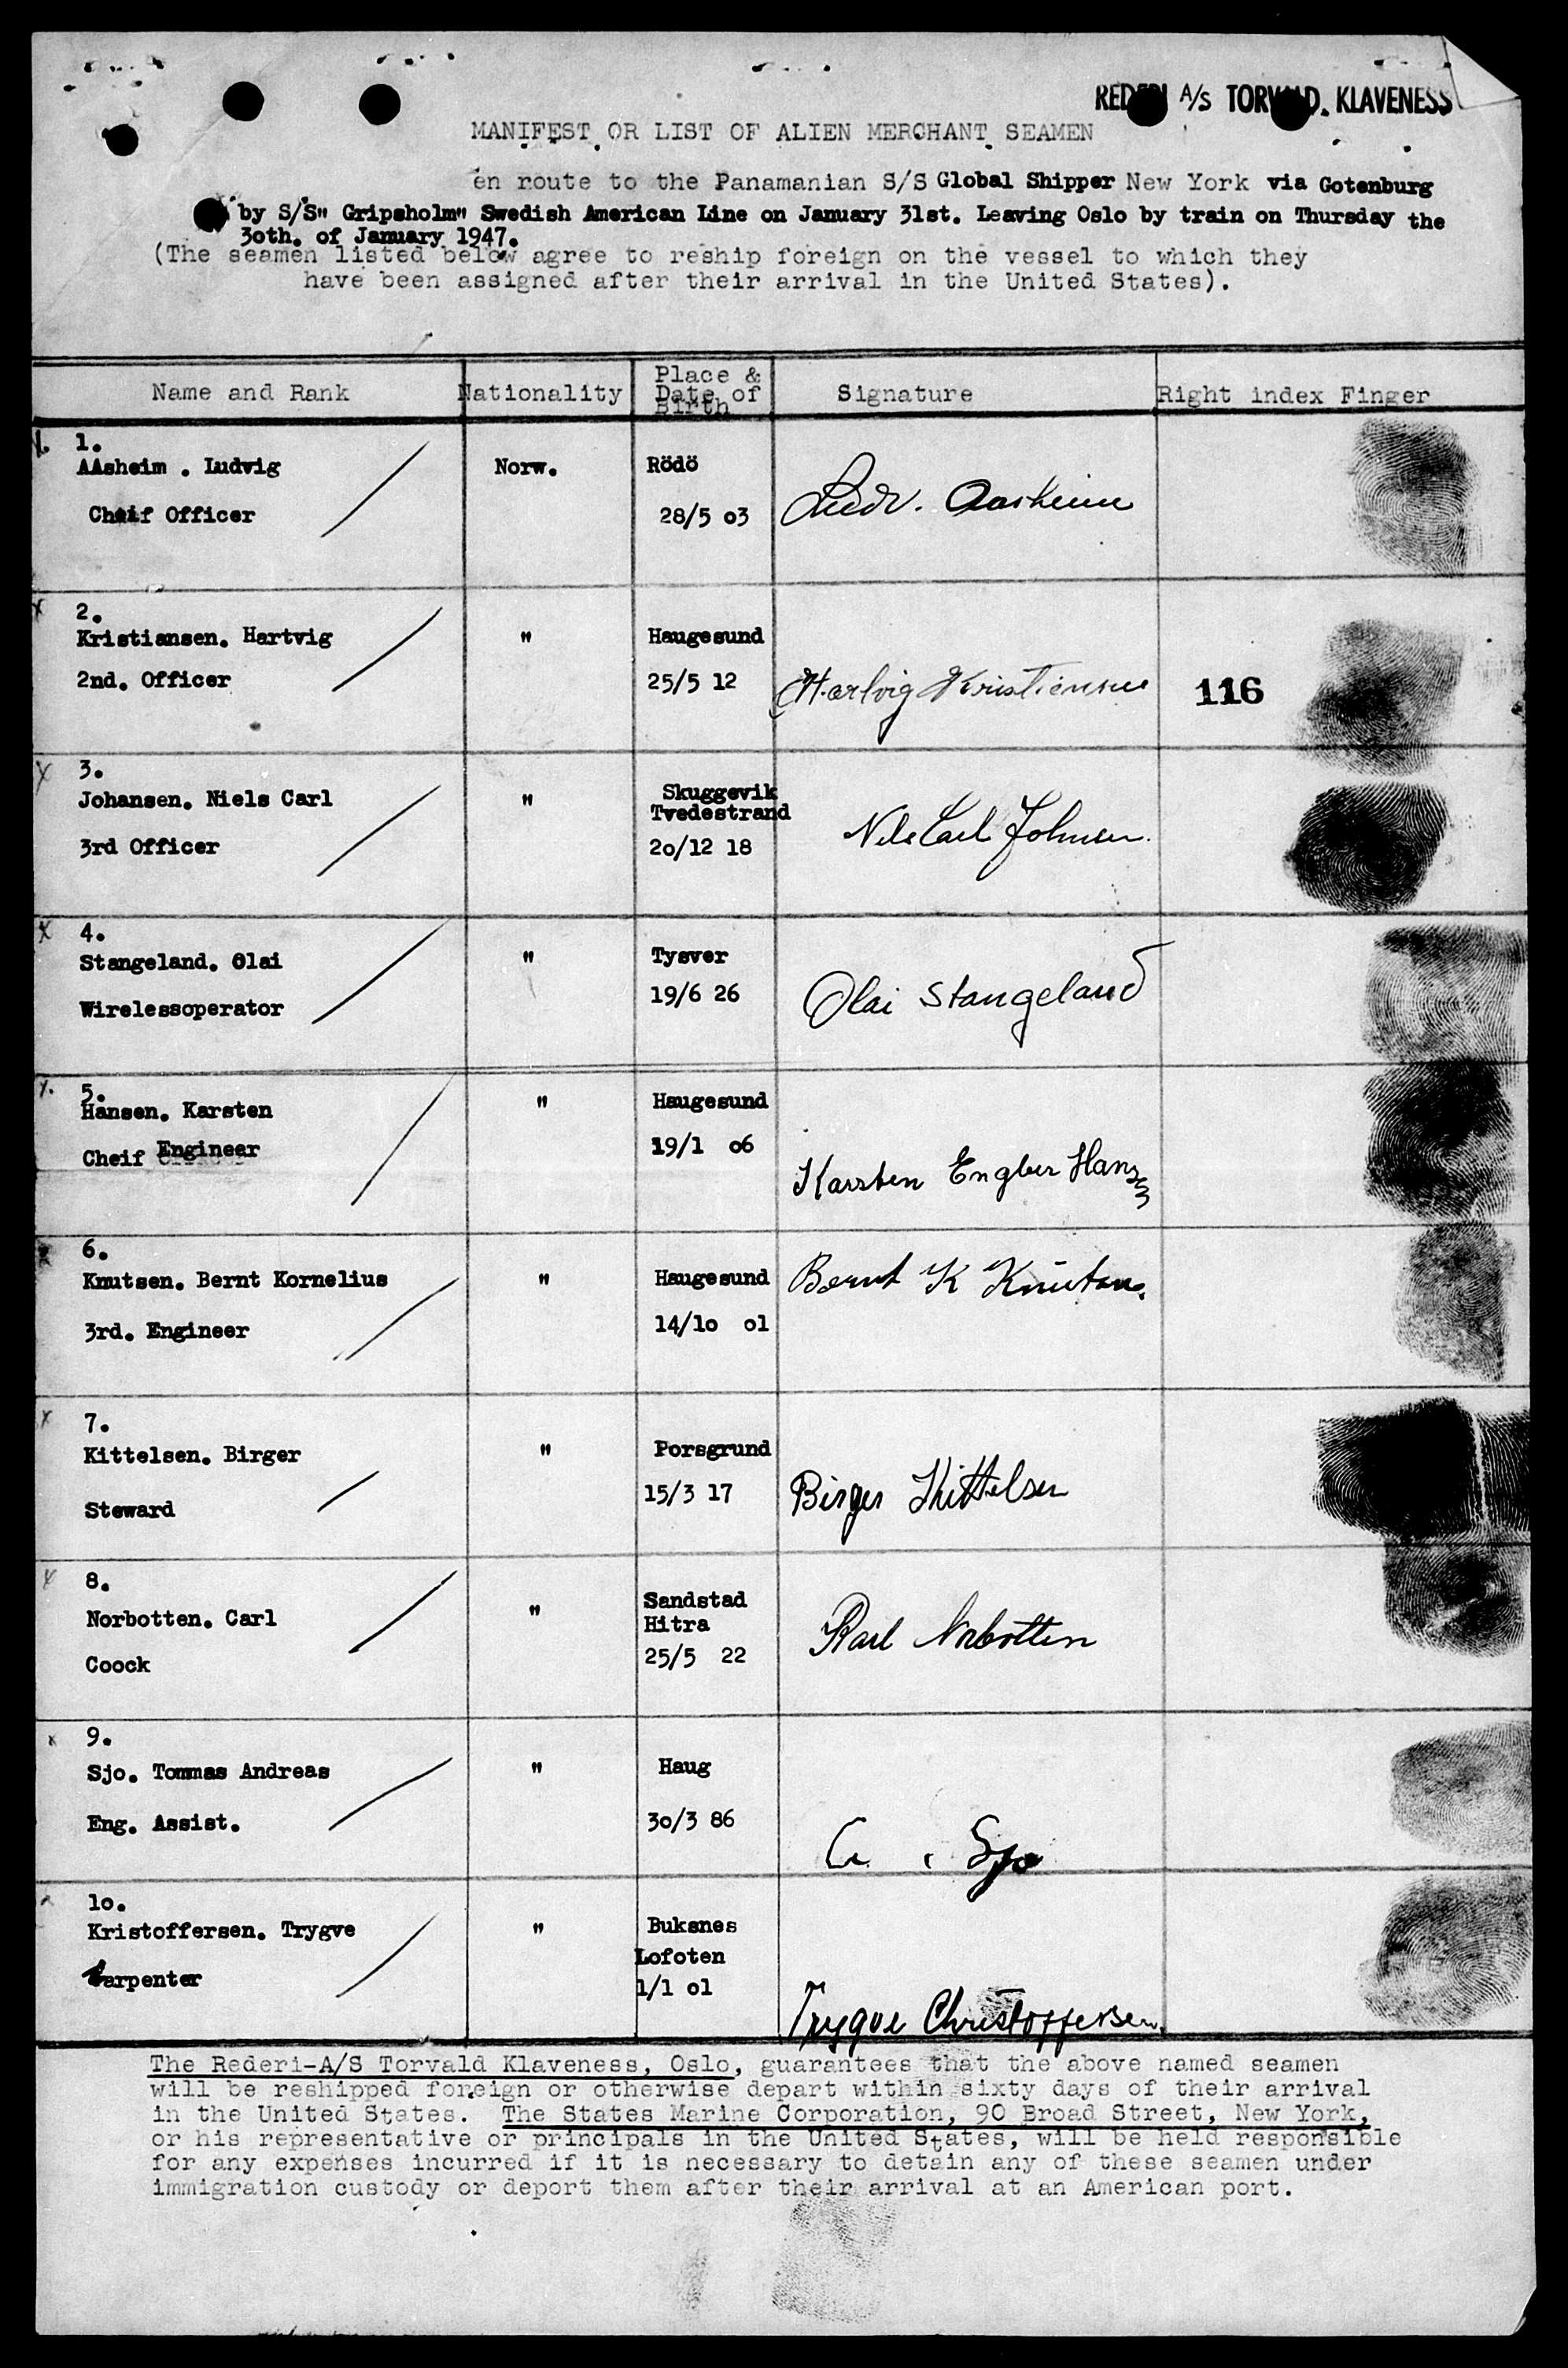 REDERI A/S TORVALD. KLAVENESS
MANIFEST OR LIST OF ALIEN MERCHANT SEAMEN
en route to the Panamanian S/S Global Shipper New York via Gotenburg
by S/S" Gripsholm" Swedish American Line on January 31st. Leaving Oslo by train on Thursday the
3oth. of January 1947.
(The seamen listed below agree to reship foreign on the vessel to which they
have been assigned after their arrival in the United States).
Name and Rank Nationality Place & Date of Birth Signature Right index Finger
1.
AAsheim . Ludvig Norw. Rödö
Cheif Officer 28/5 o3 Ludv. Aasheim
2.
Kristiansen. Hartvig " Haugesund
2nd. Officer 25/5 12 Hartvig Kristiansen 116
3.
Johansen. Niels Carl " Skuggevik
Tvedestrand
3rd Officer 2o/12 18 Nils Carl Johansen.
4.
Stangeland. Olai " Tysver
Wirelessoperator 19/6 26 Olai Stangeland
5.
Hansen. Karsten " Haugesund
Cheif Engineer 19/1 o6 Karsten Engber Hansen
6.
Knutsen. Bernt Kornelius " Haugesund Bernt K Knutsen.
3rd. Engineer 14/1o o1
7.
Kittelsen. Birger " Porsgrund
Steward 15/3 17 Birger Kittelsen
8.
Norbotten. Carl " Sandstad
Hitra
Coock 25/5 22 Karl Norbotten
9.
Sjo. Tommas Andreas " Haug
Eng. Assist. 3o/3 86 Sjo
1o.
Kristoffersen. Trygve " Buksnes
Lofoten
Carpenter 1/1 o1 Trygve Christoffersen.
The Rederi-A/S Torvald Klaveness, Oslo, guarantees that the above named seamen
will be reshipped foreign or otherwise depart within sixty days of their arrival
in the United States. The States Marine Corporation, 90 Broad Street, New York,
or his representative or principals in the United States, will be held responsible
for any expenses incurred if it is necessary to detain any of these seamen under
immigration custody or deport them after their arrival at an American port.